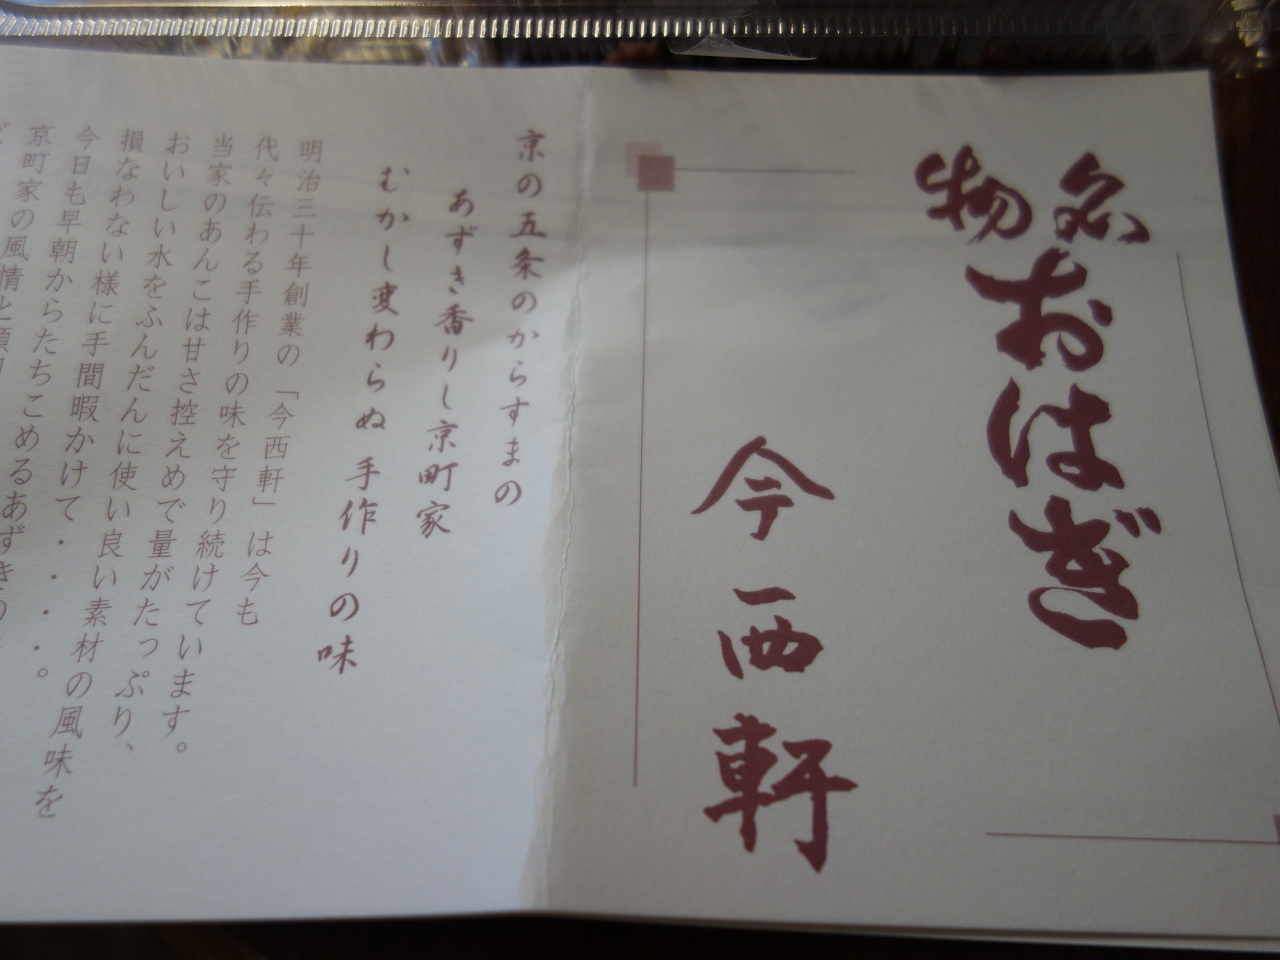 名物
おはぎ
今西軒
京の五条のからすまの
あずき香りし京町家
むかし変わらぬ手作りの味
明治三十年創業の「今西軒」は今も
代々伝わる手作りの味を守り続けています。
当家のあんこは甘さ控えめで量がたっぷり、
おいしい水をふんだんに使い良い素材の風味を
損なわない様に手間暇かけて・・・・。
今日も早朝からたちこめるあずきの
京町家の風情と